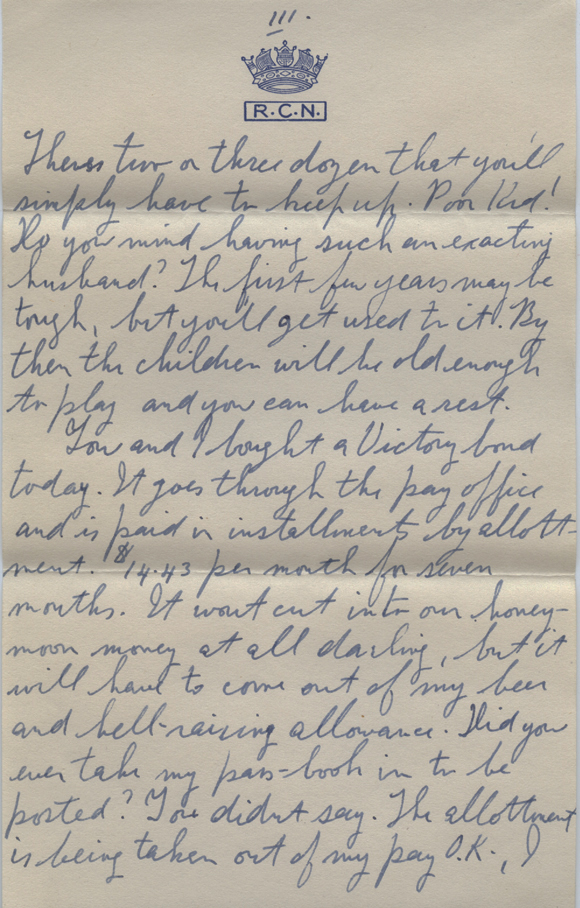 111.
R.C.N.
Theres two or three dozen that you'll
simply have to keep up. Poor Kid!
Do you mind having such an exacting
husband? The first few years may be
tough, but you'll get used to it. By
then the children will be old enough
to play and you can have a rest.
You and I bought a Victory bond
today. It goes through the pay office
and is paid in installments by allott-
ment. $14.43 per month for seven
months. It wont cut into our honey-
moon money at all darling, but it
will have to come out of my beer
and hell-raising allowance. Did you
ever take my pass-book in to be
posted? You didnt say. The allottment
is being taken out of my pay O.K., I